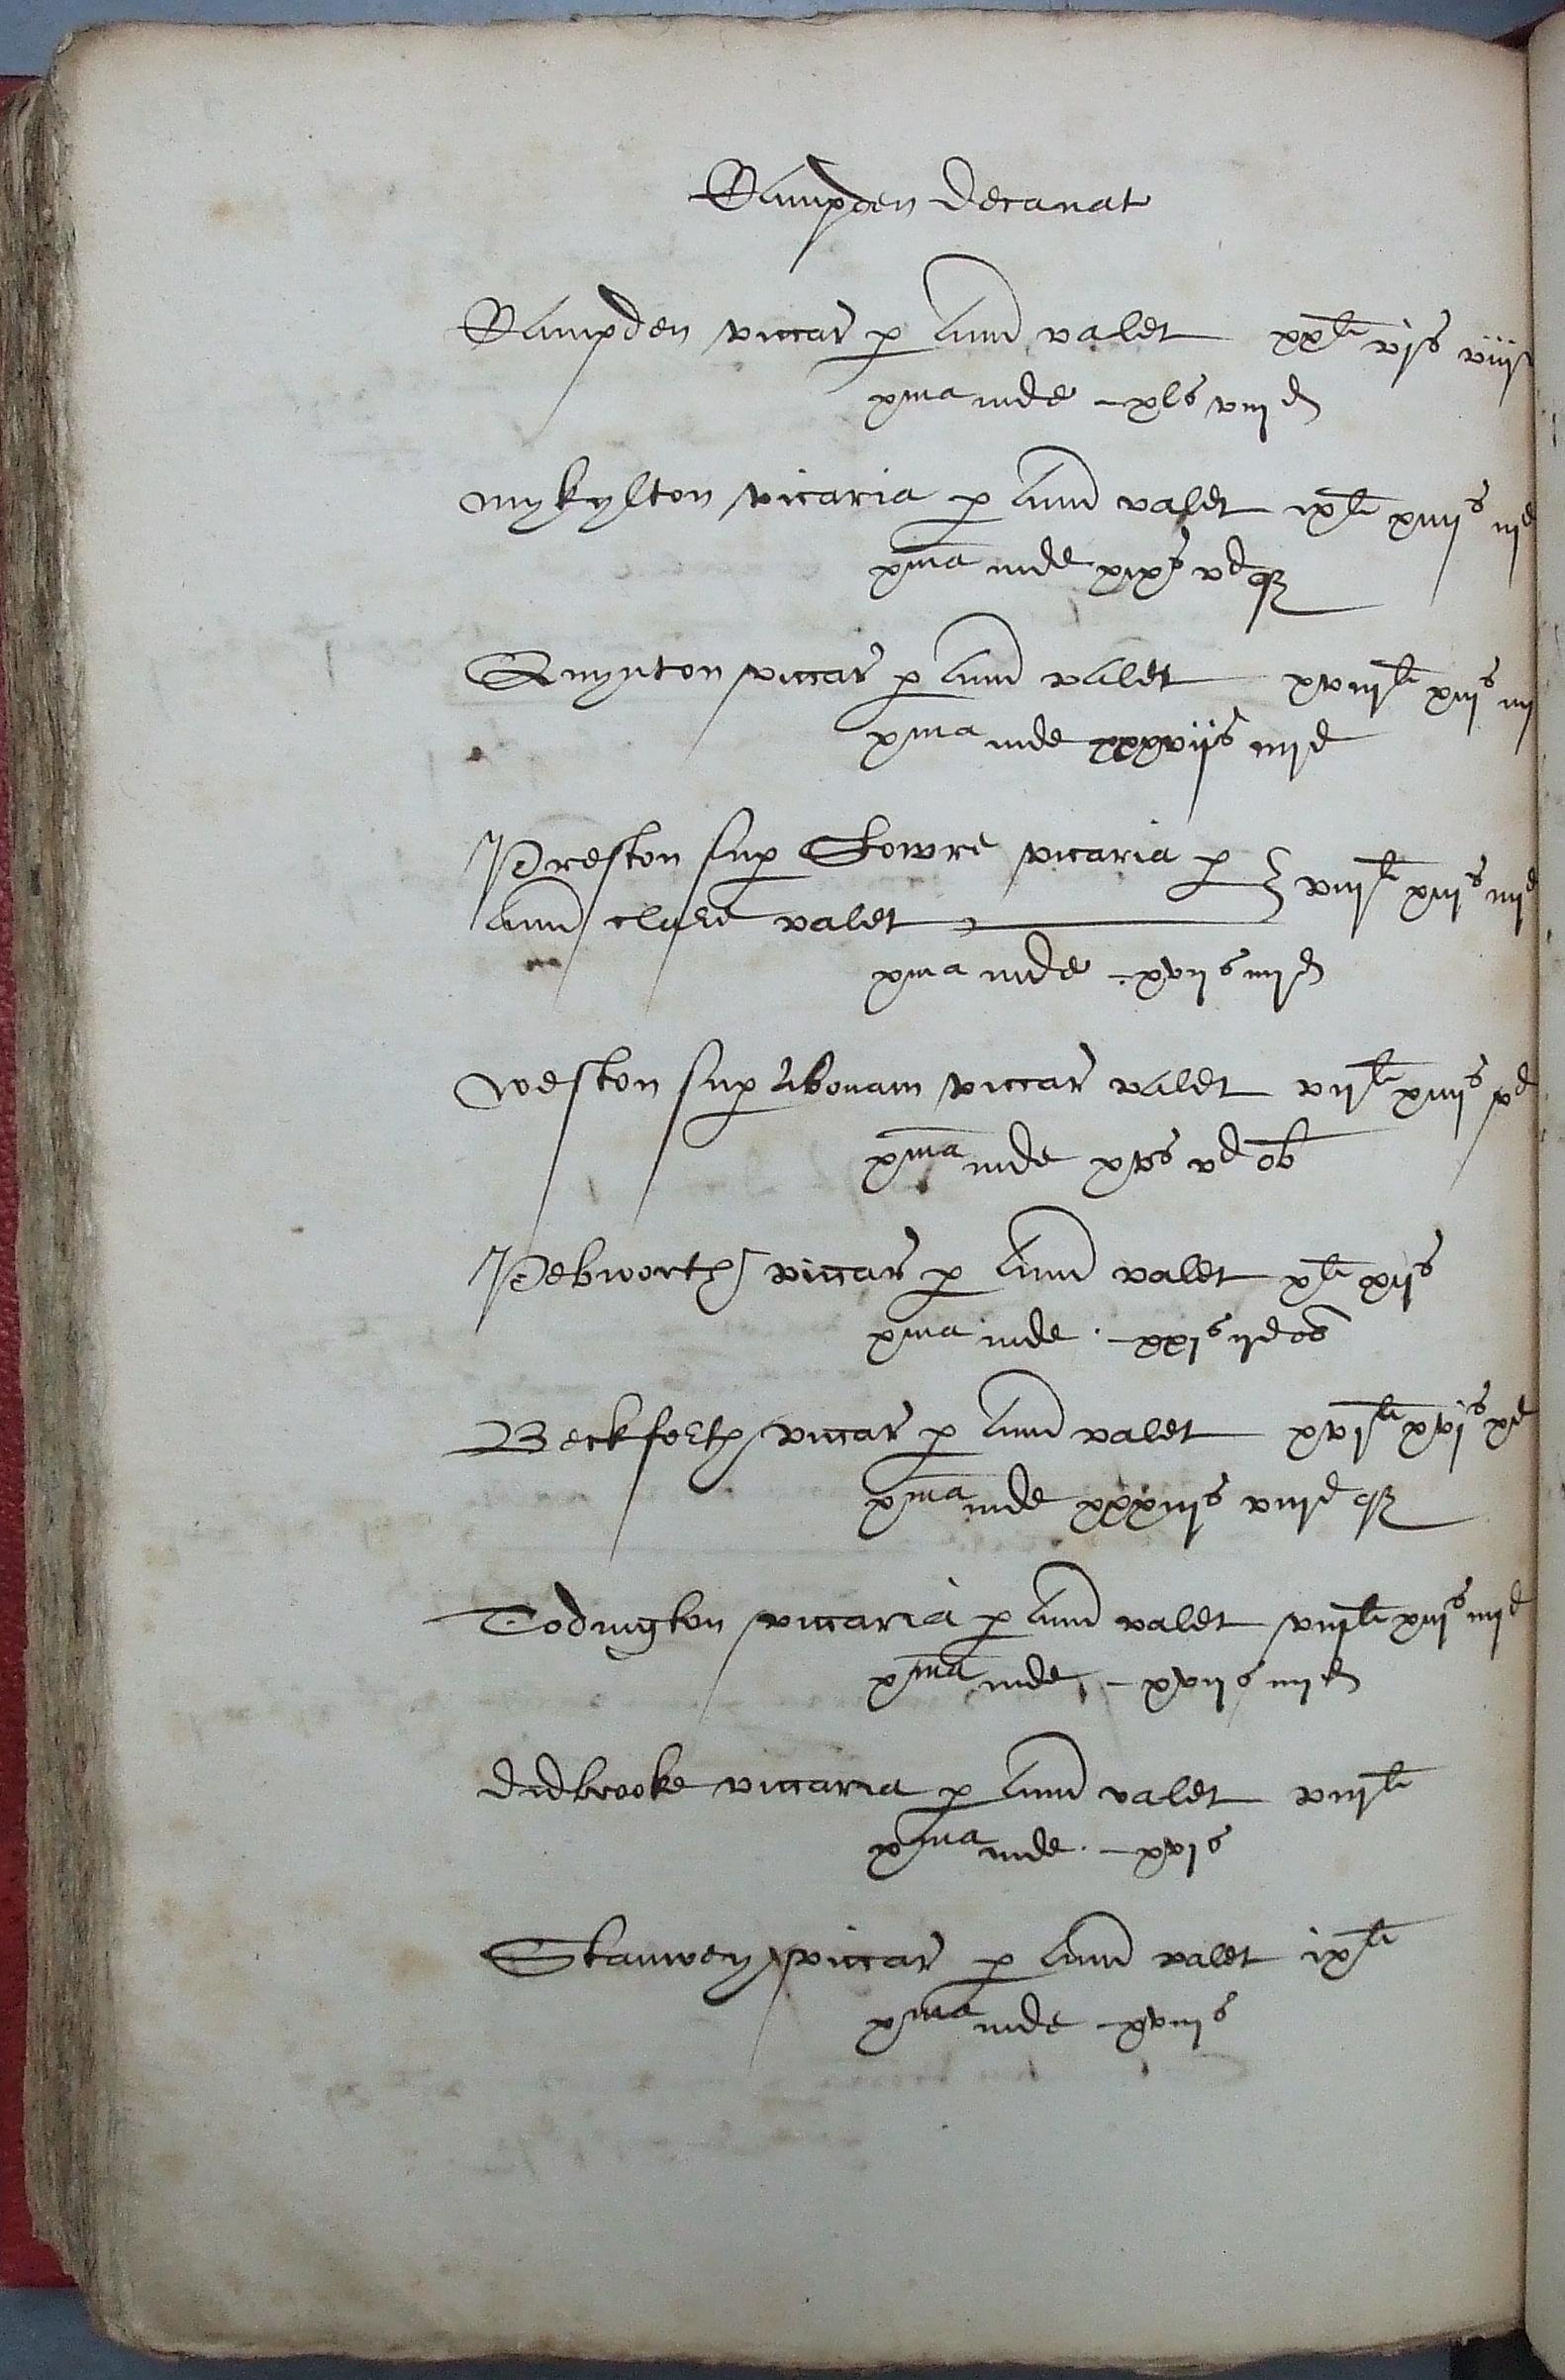 Campden decanat
Campden viccar p Ann valet xx^li vj^s viij
x^ma inde – xl^s viij d
Mykylton vicaria p Ann valet ix^li xiiij^s ij^d
x^ma inde xix^s v^d q^a
Quynton viccar p Ann valet xviij^li xiij^s iiij
x^ma inde xxxvij^s iiij d
Preston sup Stowre vicaria p } viij^li xiij^s iiij^d
Ann clare valet
x^ma inde – xvij^s iiij d
Weston sup Abonam viccar valet vij^li xiiij^s v^d
x^ma inde xv^s v^d ob
Pebworth viccar p Ann valet x^li xij^s
x^ma inde – xxj^s ij^d ob
Beckforth viccar p Ann valet xvj^li xvj^s x^d
x^ma inde xxxiij^s viij^d q^a
Todington viccaria p Ann valet viij^li xiij^s iiij^d
x^ma inde – xvij^s iiij d
Didbrooke viccaria p Ann valet viij^li
x^ma inde – xvj^s
Stanwey viccar p Ann valet ix^li
x^ma inde – xviij^s